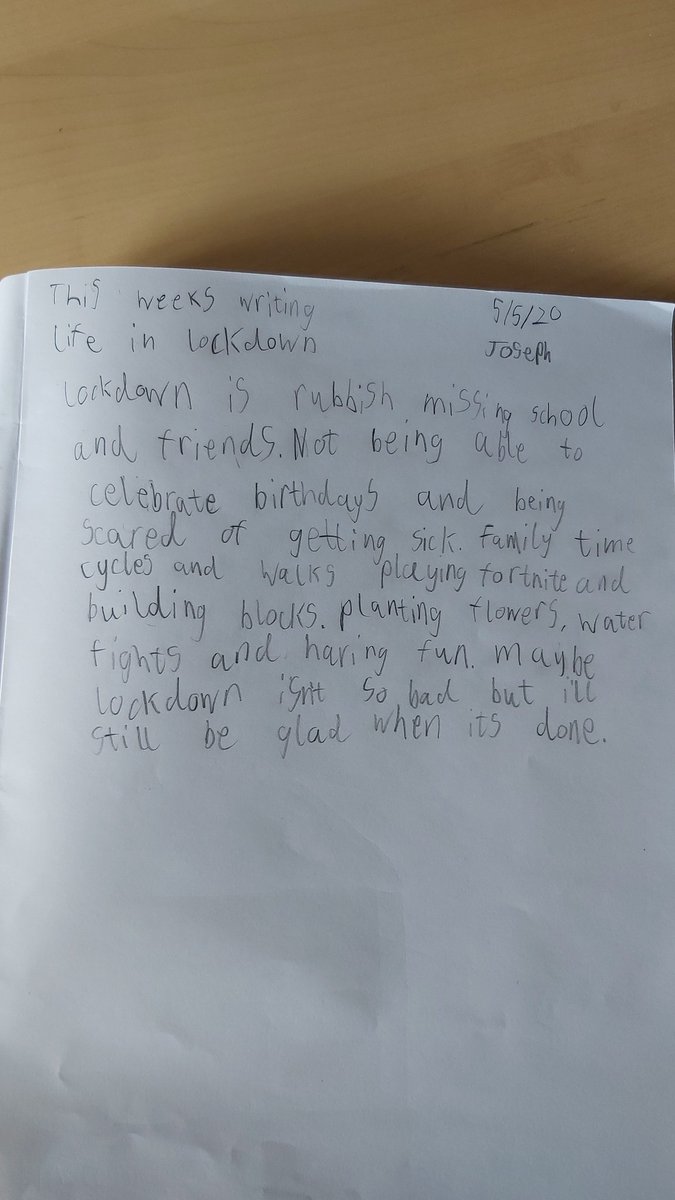 This weeks writing 5/5/20
Life in lockdown Joseph
Lockdown is rubbish missing school
and friends. Not being able to
celebrate birthdays and being
scared of getting sick. Family time
cycles and walks playing fortnite and
building blocks. Planting flowers, water
fights and having fun. Maybe
lockdown isnt so bad but ill
still be glad when its done.